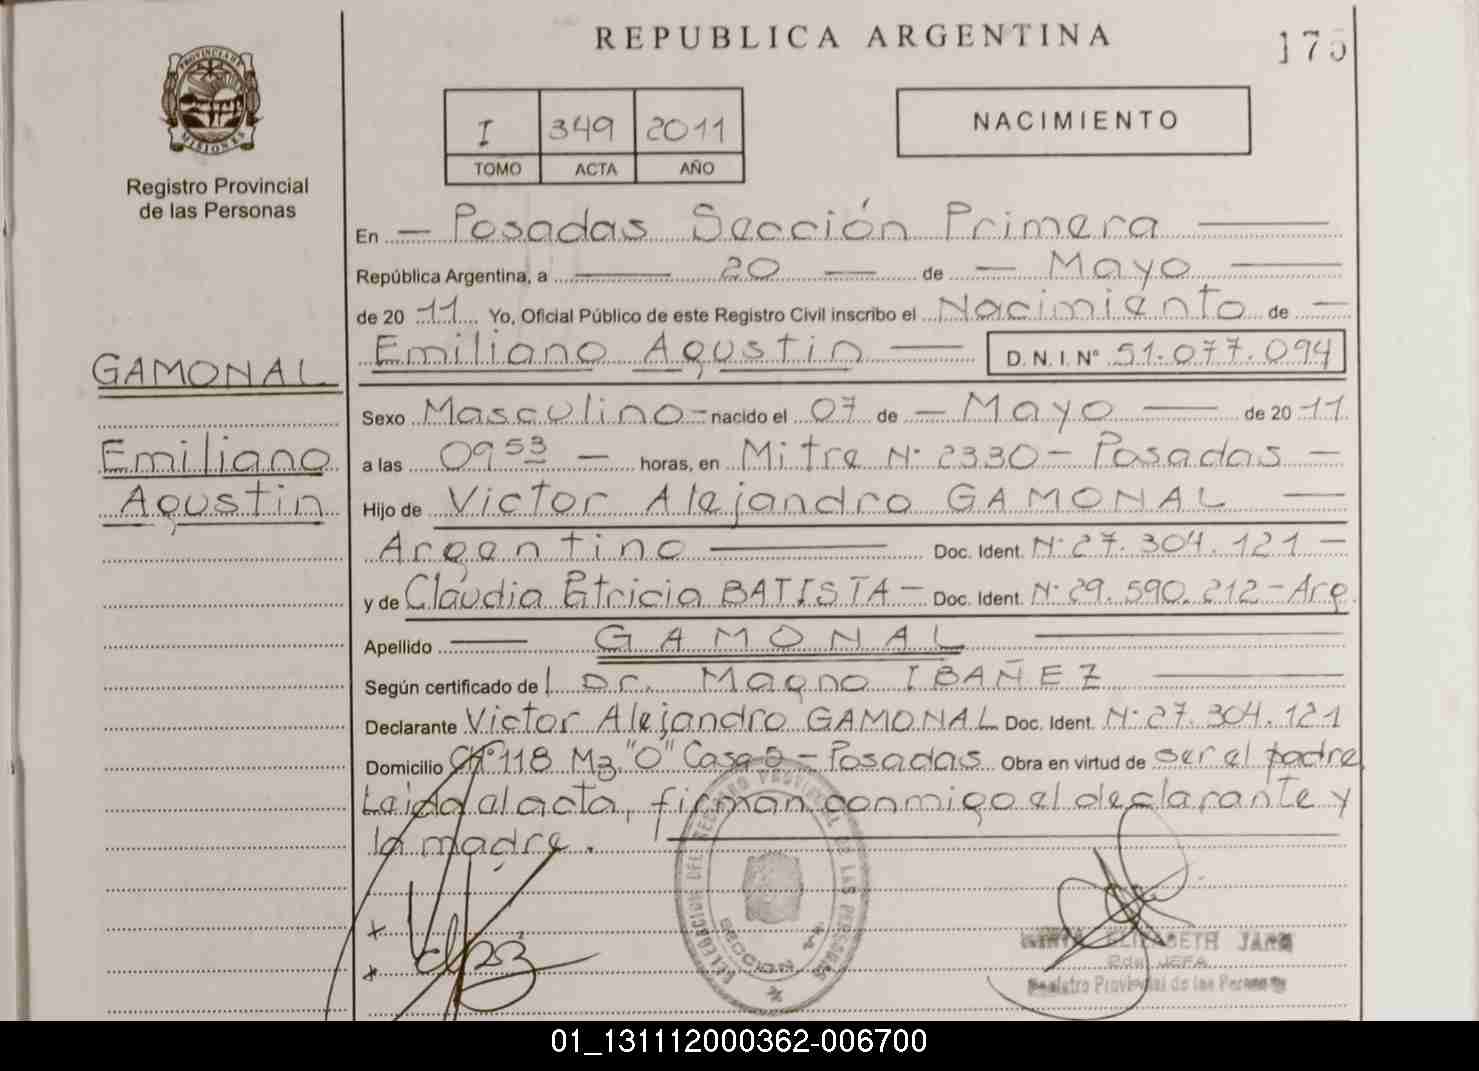 REPUBLICA ARGENTINA
175
PROVINCIA DE MISIONES
Registro Provincial
de las Personas
I 349 2011
TOMO ACTA AÑO
NACIMIENTO
En — Posadas Sección Primera
República Argentina, a — 20 — de — Mayo
de 20 11 Yo, Oficial Público de este Registro Civil inscribo el Nacimiento de —
Emiliano Agustin — D. N. I. Nº 51.077.094
GAMONAL
Emiliano
Agustin
Sexo Masculino — nacido el 07 de — Mayo — de 20 11
a las 09 53 — horas, en Mitre Nº 2330 — Posadas —
Hijo de Victor Alejandro GAMONAL —
Argentino — Doc. Ident. Nº 27.304.121 —
y de Claudia Ptricia BATISTA — Doc. Ident. Nº 29.590.212 — Arg
Apellido — GAMONAL —
Según certificado de l Dr. Magno IBAÑEZ —
Declarante Victor Alejandro GAMONAL Doc. Ident. Nº 27.304.121
Domicilio CH º 118 Mz "O" Casa 2 — Posadas Obra en virtud de ser el padre
Leida al acta, firman conmigo el declarante y
la madre.
DELEGACION DEL REGISTRO PROVINCIAL DE LAS PERSONAS
SECCION 1ª
ELIZABETH
2da JEFA
Registro Provincial de las Personas
01_131112000362-006700